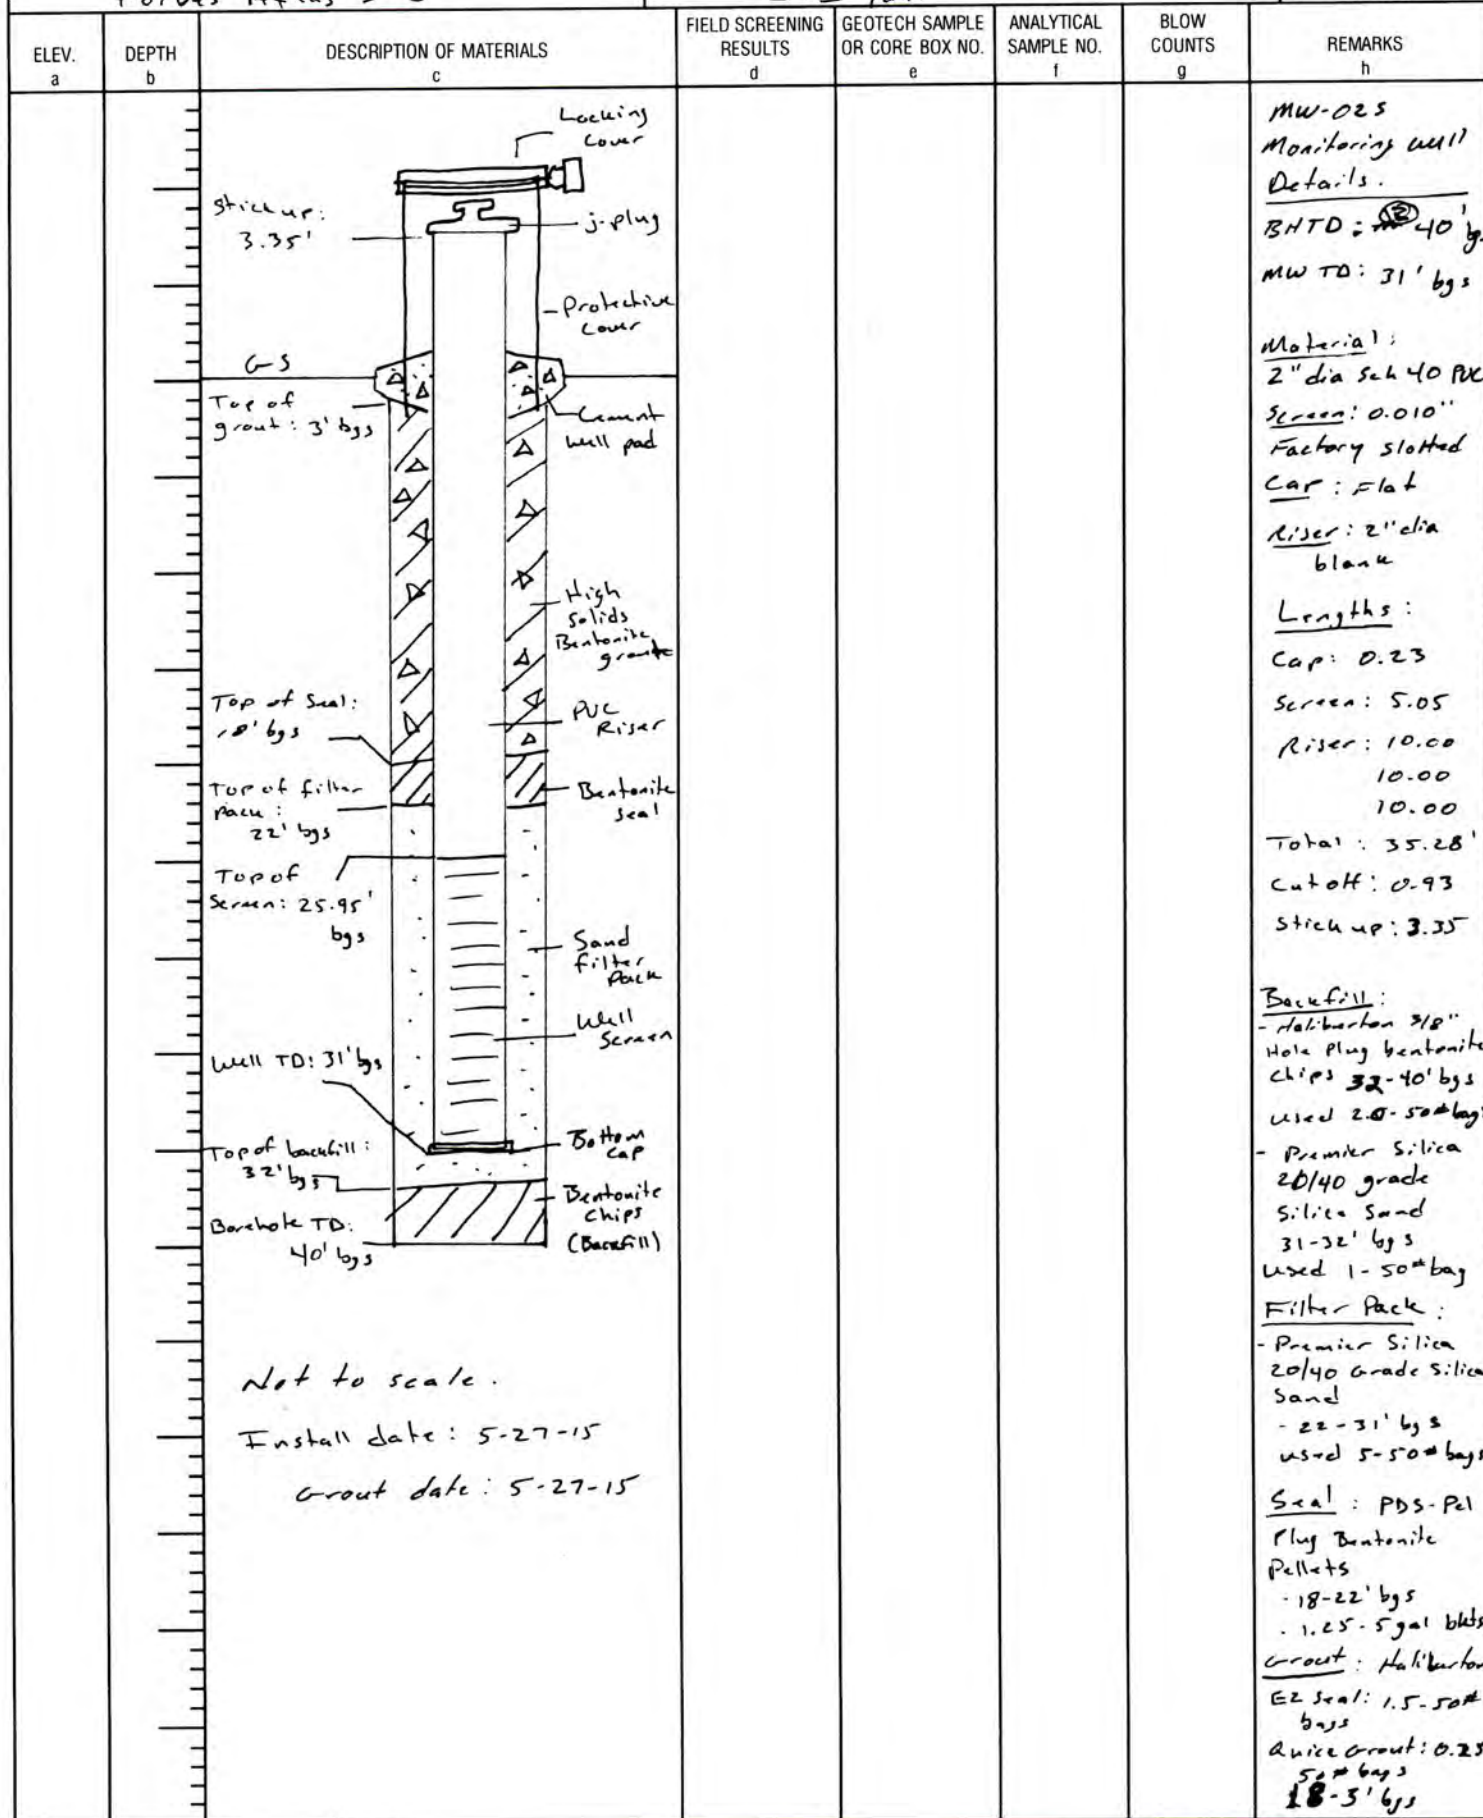 ELEV.
a
DEPTH
b
DESCRIPTION OF MATERIALS
c
FIELD SCREENING
RESULTS
d
GEOTECH SAMPLE
OR CORE BOX NO.
e
ANALYTICAL
SAMPLE NO.
f
BLOW
COUNTS
g
REMARKS
h
Locking
Cover
Stick up:
3.35'
j-plug
Protective
Cover
GS
Top of
grout: 3' bgs
Cement
Well pad
High
Solids
Bentonite
grout
Top of Seal:
18' bgs
PVC
Riser
Top of filter
pack:
22' bgs
Bentonite
seal
Top of
Screen: 25.95'
bgs
Sand
filter
Pack
Well
Screen
Well TD: 31' bgs
Top of backfill:
32' bgs
Bottom
cap
Bentonite
Chips
(Backfill)
Borehole TD:
40' bgs
Not to scale.
Install date: 5-27-15
Grout date: 5-27-15
MW-02S
Monitoring well
Details.
BHTD: 40'
MW TD: 31' bgs
Material:
2" dia Sch 40 PVC
Screen: 0.010"
Factory slotted
Cap: Flat
Riser: 2" dia
blank
Lengths:
Cap: 0.23
Screen: 5.05
Riser: 10.00
10.00
10.00
Total: 35.28'
Cutoff: 0.93
Stick up: 3.35
Backfill:
- Haliburton 3/8"
Hole Plug bentonite
Chips 32-40' bgs
used 2.0-50# bags
- Premier Silica
20/40 grade
Silica Sand
31-32' bgs
used 1-50# bag
Filter Pack:
- Premier Silica
20/40 Grade Silica
Sand
- 22-31' bgs
used 5-50# bags
Seal: PDS-Pel
Plug Bentonite
Pellets
- 18-22' bgs
- 1.25-5 gal bkts
Grout: Haliburton
EZ Seal: 1.5-50#
bags
Quick Grout: 0.25
50# bags
18-3' bgs